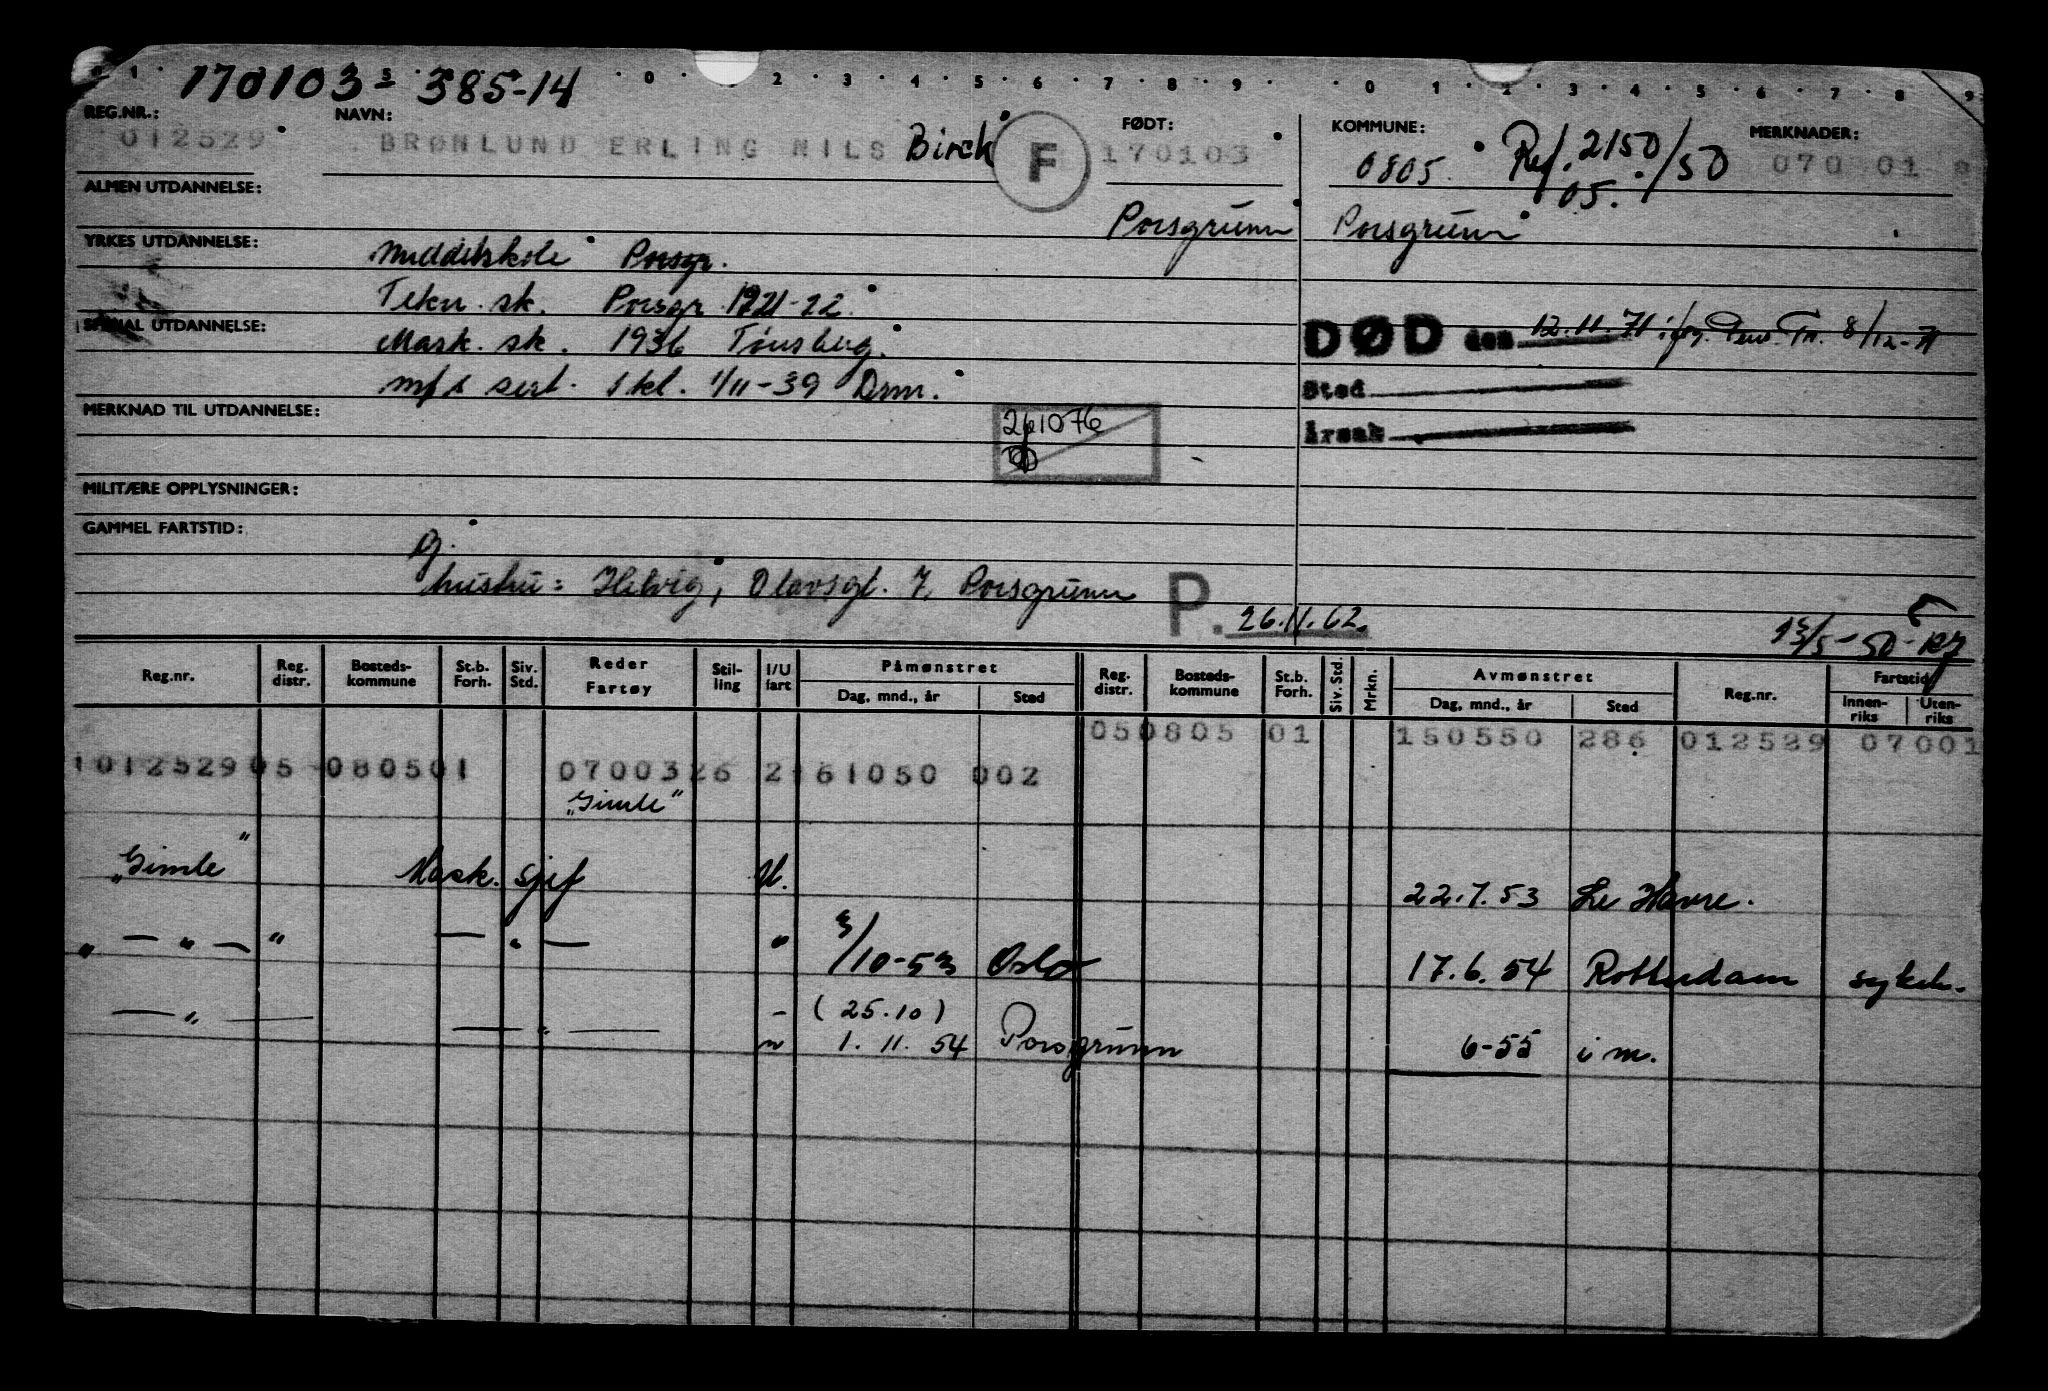 170103 385-14
REG.NR.: NAVN: FØDT: KOMMUNE: MERKNADER:
012529 BRØNLUND ERLING NILS Birck F 170103 0805 Ref. 2150/50 070 01 8
05.
ALMEN UTDANNELSE:
Porsgrunn Porsgrunn
YRKES UTDANNELSE:
Middelskole Porsgr.
Tekn. sk. Porsgr. 1921-22
SPESIAL UTDANNELSE:
Mask. sk. 1936 Tønsberg.
DØD den 12.11.71 8/12-71
Sted
Årsak
sert. 1 kl. 1/11-39 Drm.
MERKNAD TIL UTDANNELSE:
261076
MILITÆRE OPPLYSNINGER:
GAMMEL FARTSTID:
g.
hustru: Helvig, Olavsgt. 7, Porsgrunn
P. 26.11.62.
Reg.nr. Reg. distr. Bosteds-kommune St.b. Forh. Siv. Std. Reder Fartøy Stil-ling I/U fart Påmønstret Dag, mnd., år Sted Reg. distr. Bosteds-kommune St.b. Forh. Siv. Std. Mrkn. Avmønstret Dag, mnd., år Sted Reg.nr. Fartstid Innen-riks Uten-riks
050805 01 150550 286 012529 07001
101252905 080501 0700326 2 161050 002
"Gimle"
"Gimle" Mask. sjef U. 22.7.53 Le Havre.
" — " — " — " — " 3/10-53 Oslo 17.6.54 Rotterdam sykeh.
— " — — " — - (25.10)
" 1. 11. 54 Porsgrunn 6-55 i m.